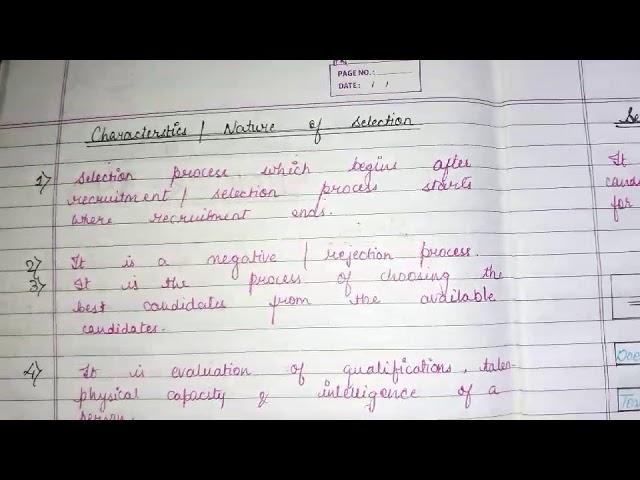 PAGE NO.:
DATE: / /
Characterstics / Nature of selection
1) Selection process which begins after
recruitment / selection process starts
where recruitment ends.
2) It is a negative / rejection process.
3) It is the process of choosing the
best candidates from the available
candidates.
4) It is evaluation of qualifications, talen-
physical capacity & intelligence of a
person.
Se
It
cand
for
Doe